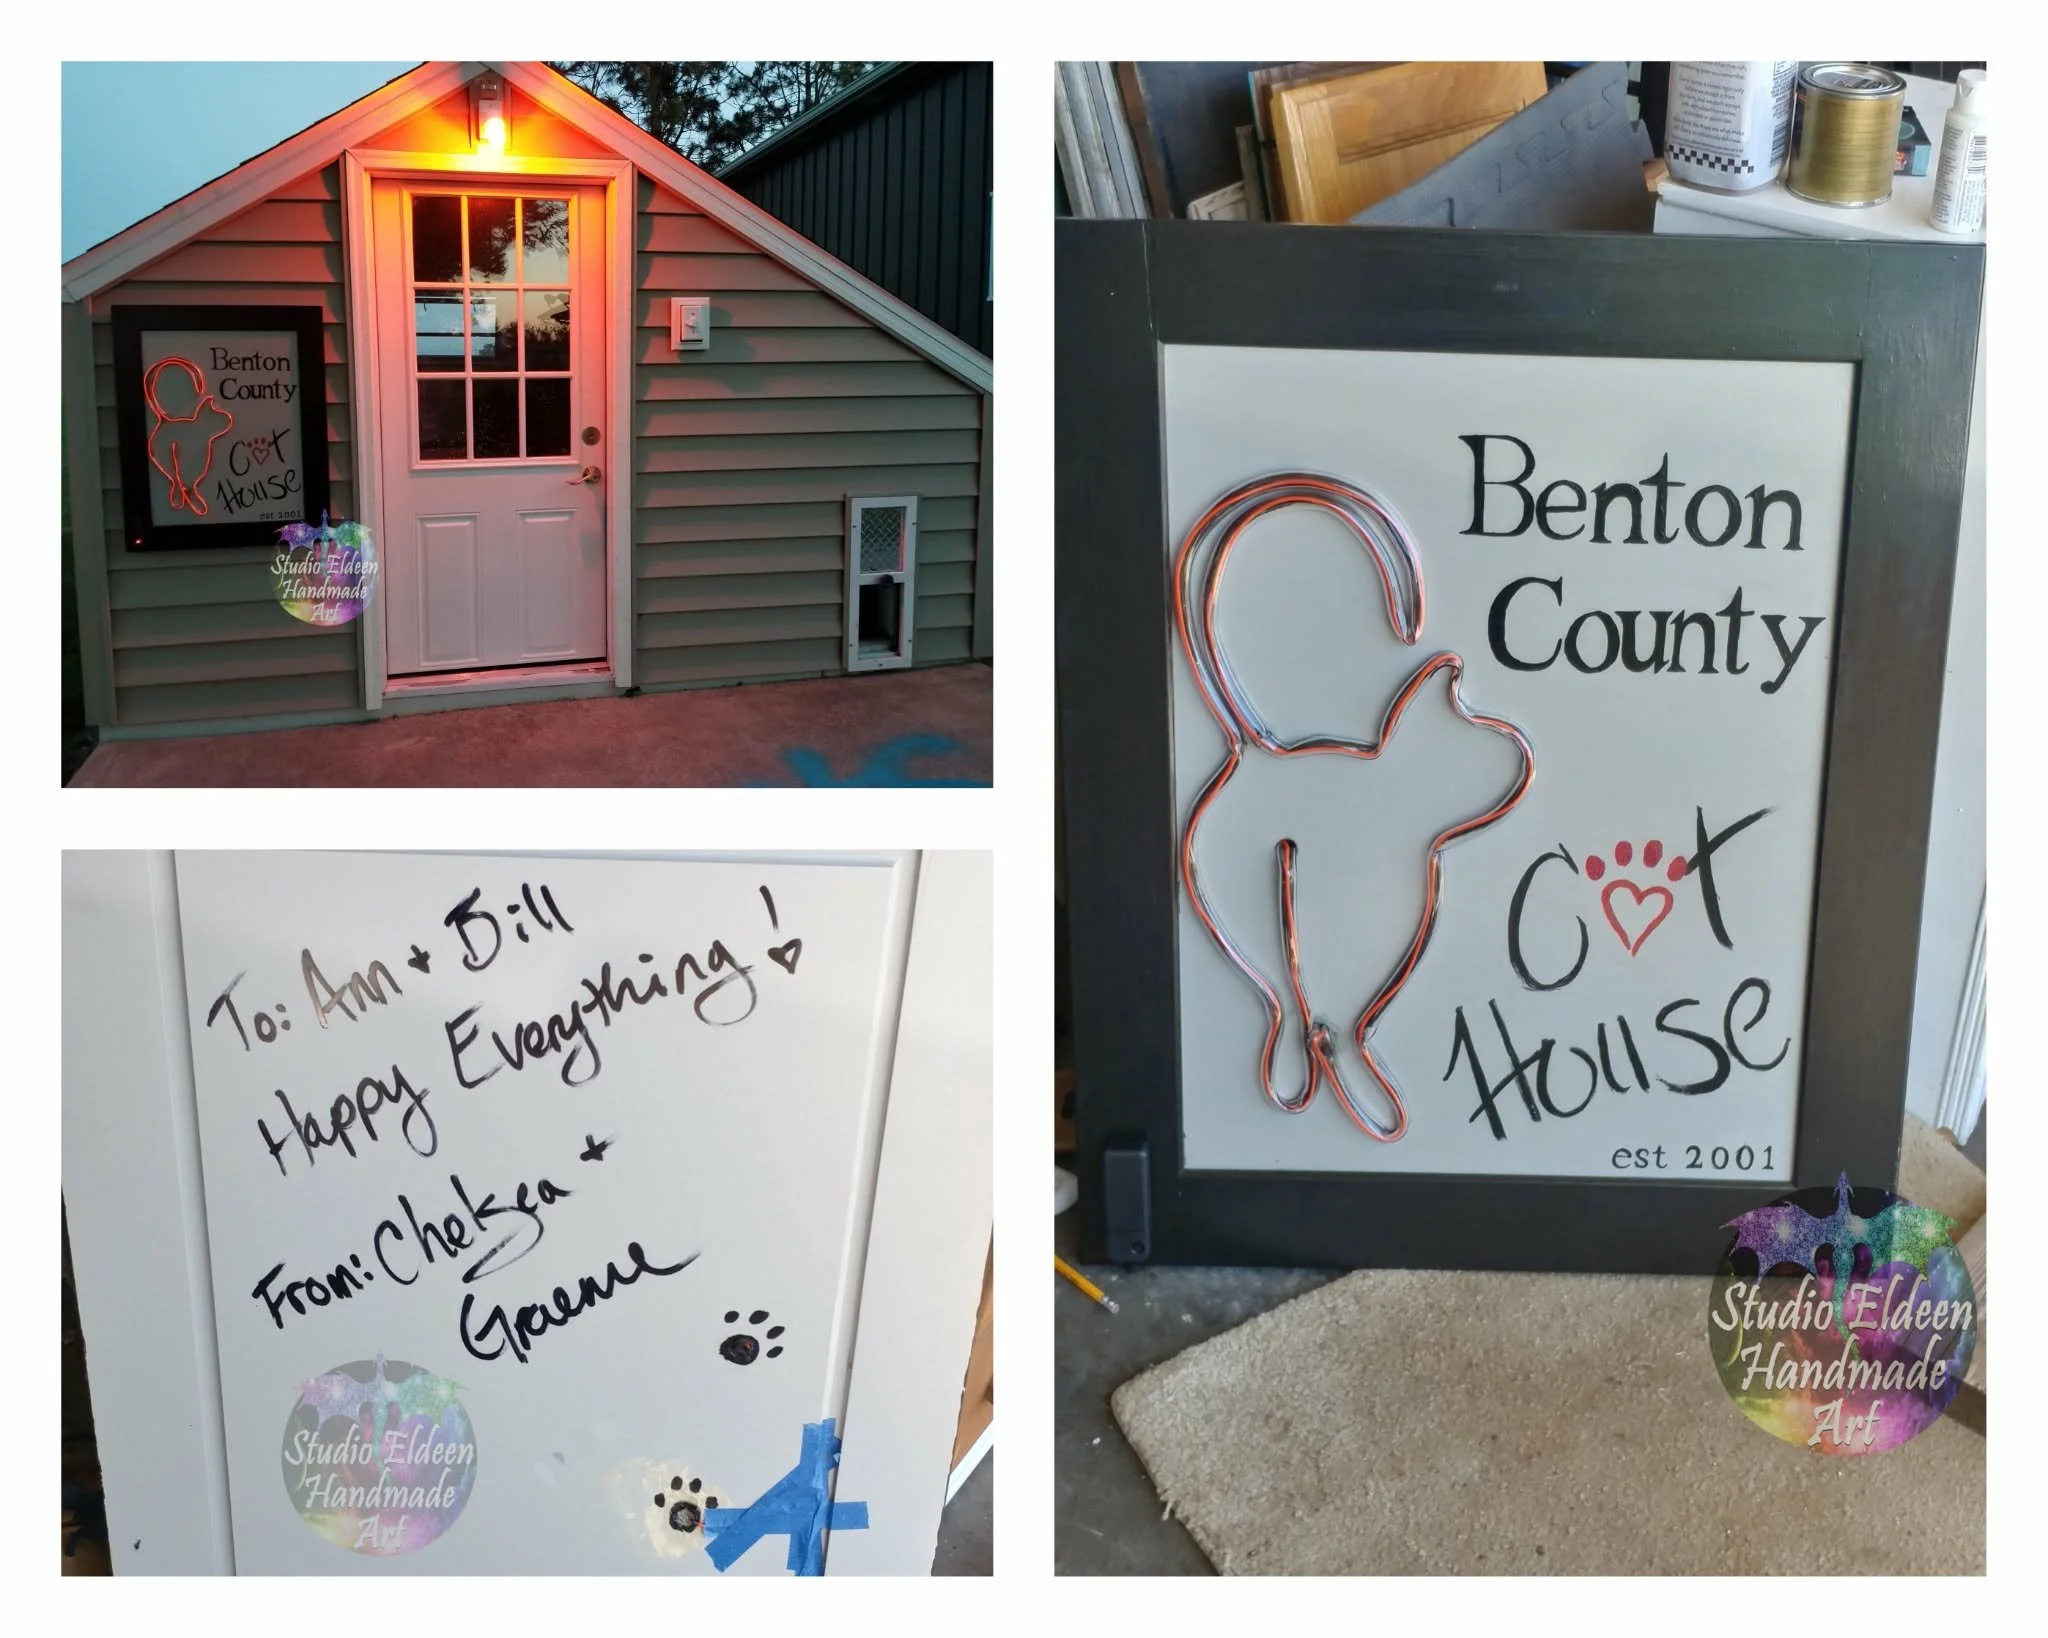 Benton
County
Cat
House
est 2001
Studio Eldeen
Handmade
Art
To: Ann + Bill
Happy Everything!
From: Chelsea +
Graeme
Studio Eldeen
Handmade
Art
Benton
County
Cat
House
est 2001
Studio Eldeen
Handmade
Art